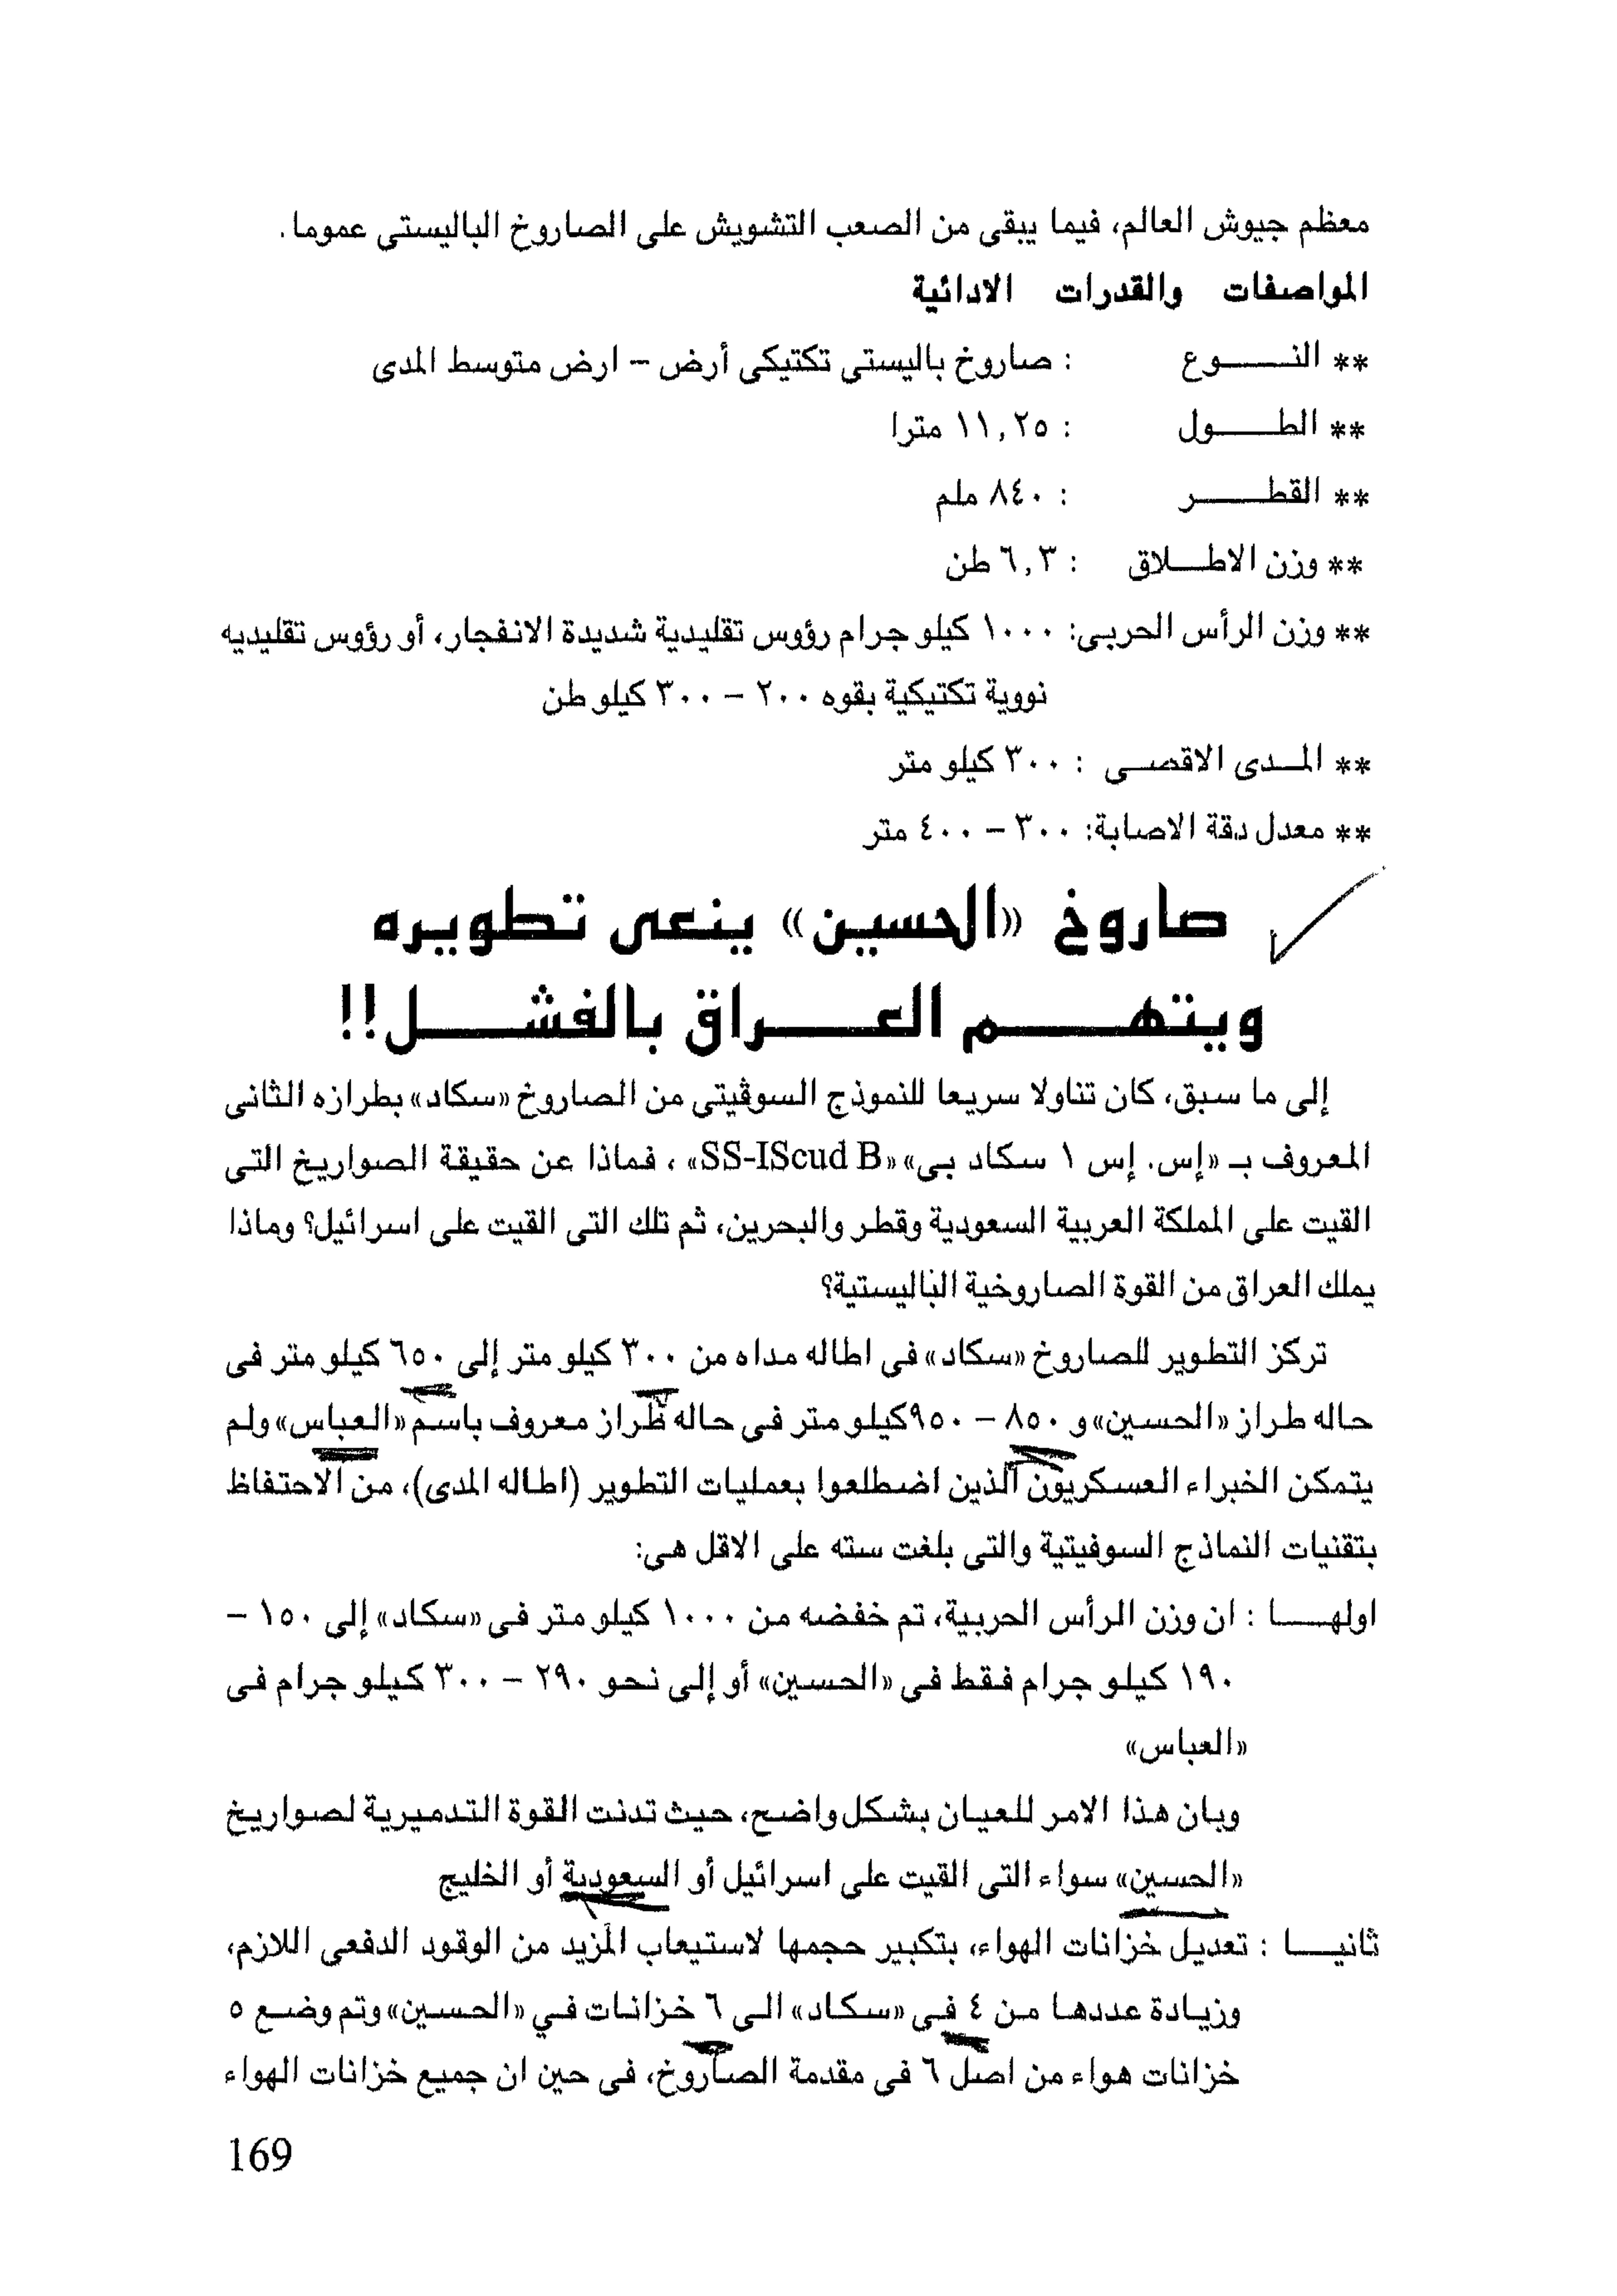 معظم جيوش العالم، فيما يبقى من الصعب التشويش على الصاروخ الباليستى عموما.
المواصفات والقدرات الادائية
** النـــــوع : صاروخ باليستى تكتيكى أرض – ارض متوسط المدى
** الطـــــول : ١١,٢٥ مترا
** القطـــــر : ٨٤٠ ملم
** وزن الاطــلاق : ٦,٣ طن
** وزن الرأس الحربى: ١٠٠٠ كيلو جرام رؤوس تقليدية شديدة الانفجار، أو رؤوس تقليديه
نووية تكتيكية بقوه ٢٠٠ – ٣٠٠ كيلو طن
** المــدى الاقصــى : ٣٠٠ كيلو متر
** معدل دقة الاصابة: ٣٠٠ – ٤٠٠ متر
صاروخ «الحسين» ينعى تطويره
ويتهـــــم العـــــراق بالفشـــــل!!
إلى ما سبق، كان تناولا سريعا للنموذج السوڤيتى من الصاروخ «سكاد» بطرازه الثانى
المعروف بـ «إس. إس ١ سكاد بى» «SS-IScud B» ، فماذا عن حقيقة الصواريخ التى
القيت على المملكة العربية السعودية وقطر والبحرين، ثم تلك التى القيت على اسرائيل؟ وماذا
يملك العراق من القوة الصاروخية الباليستية؟
تركز التطوير للصاروخ «سكاد» فى اطاله مداه من ٣٠٠ كيلو متر إلى ٦٥٠ كيلو متر فى
حاله طراز «الحسين» و ٨٥٠ – ٩٥٠ كيلو متر فى حاله طراز معروف باسم «العباس» ولم
يتمكن الخبراء العسكريون الذين اضطلعوا بعمليات التطوير (اطاله المدى)، من الاحتفاظ
بتقنيات النماذج السوفيتية والتى بلغت سته على الاقل هى:
اولهـــا : ان وزن الرأس الحربية، تم خفضه من ١٠٠٠ كيلو متر فى «سكاد» إلى ١٥٠ –
١٩٠ كيلو جرام فقط فى «الحسين» أو إلى نحو ٢٩٠ – ٣٠٠ كيلو جرام فى
«العباس»
وبان هذا الامر للعيان بشكل واضح، حيث تدنت القوة التدميرية لصواريخ
«الحسين» سواء التى القيت على اسرائيل أو السعودية أو الخليج
ثانيـــا : تعديل خزانات الهواء، بتكبير حجمها لاستيعاب المزيد من الوقود الدفعى اللازم،
وزيادة عددها من ٤ فى «سكاد» الى ٦ خزانات في «الحسين» وتم وضع ٥
خزانات هواء من اصل ٦ فى مقدمة الصاروخ، فى حين ان جميع خزانات الهواء
169